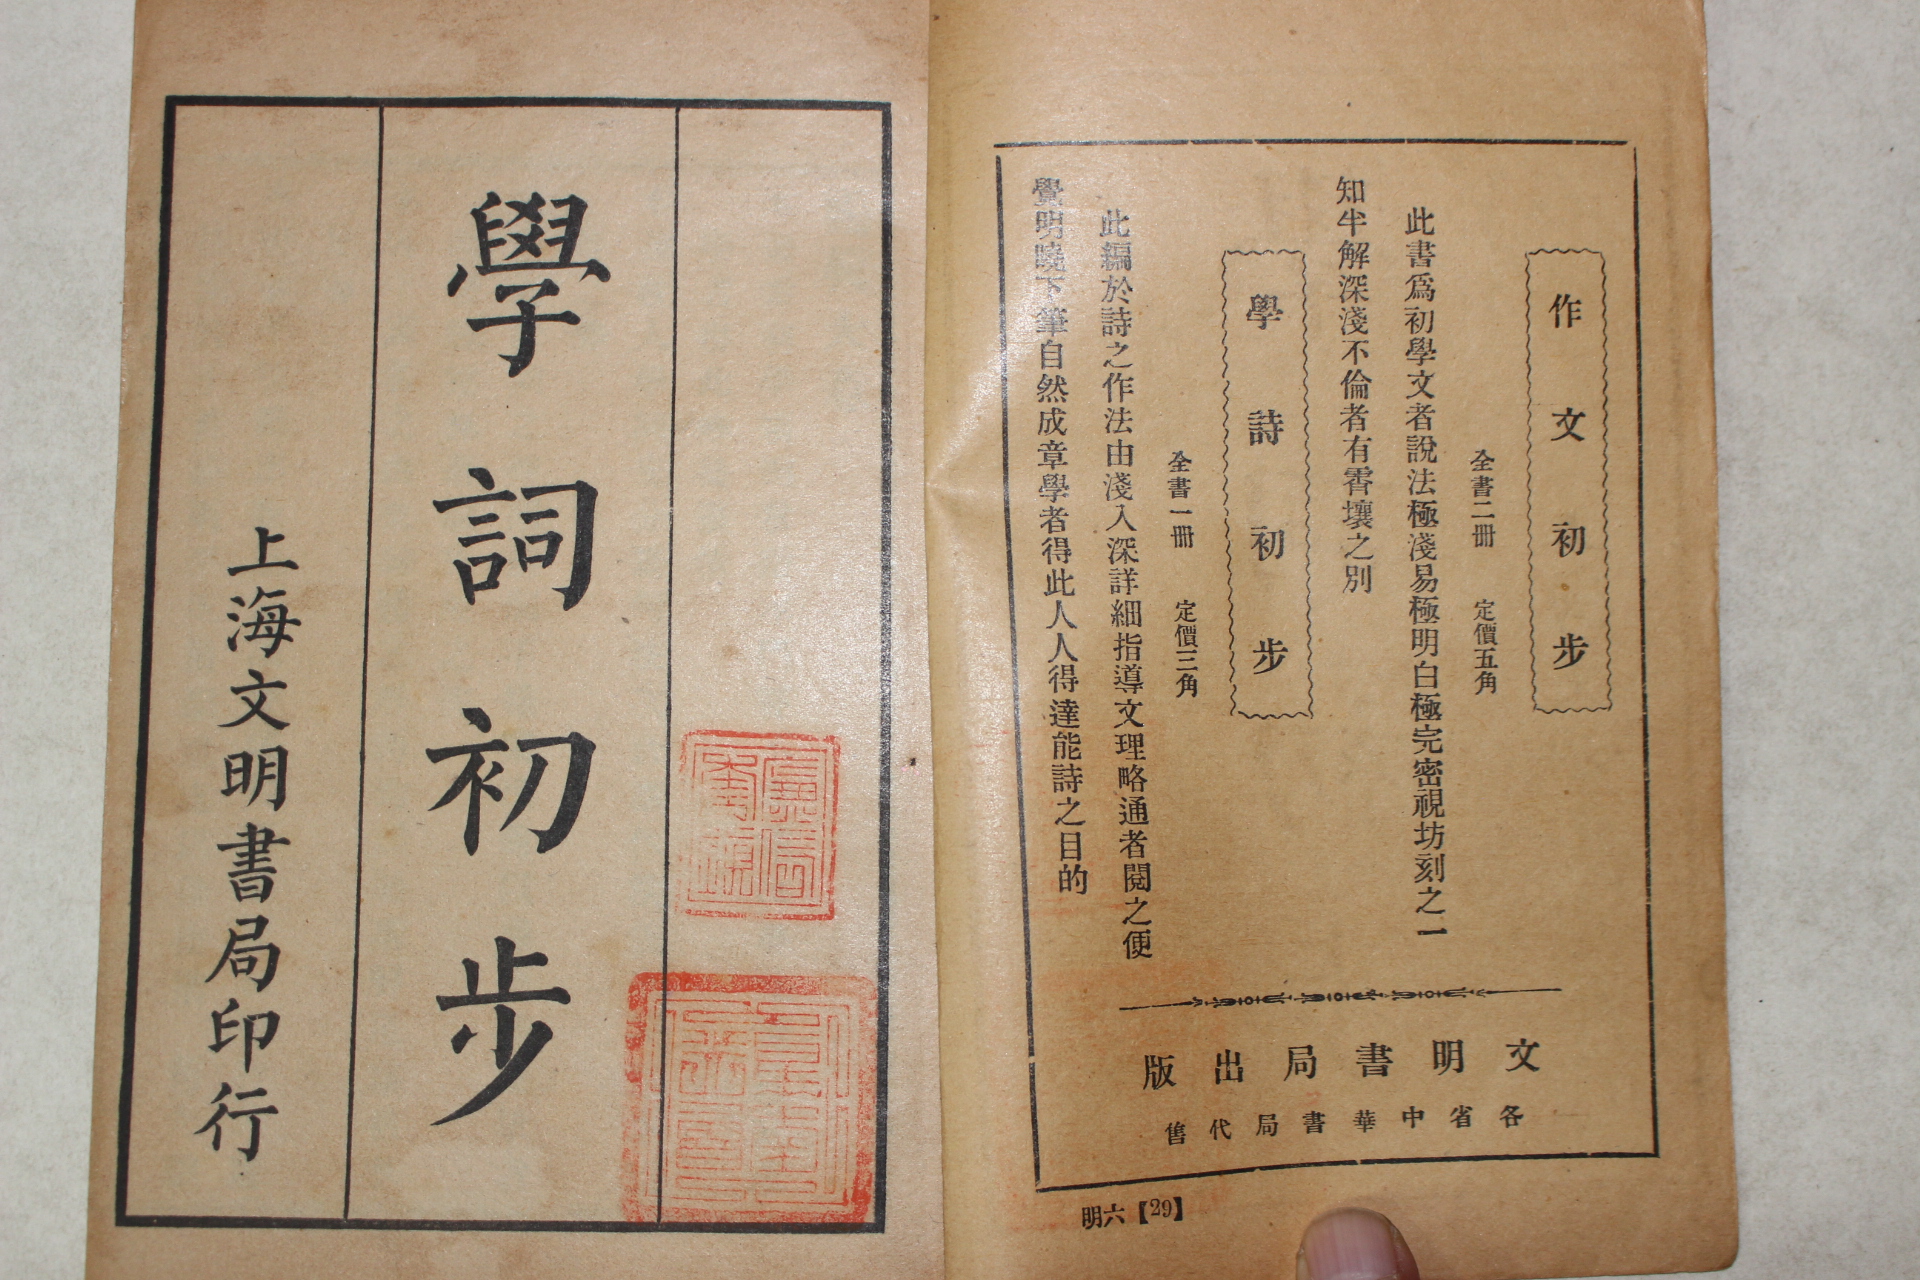 作文初步
全書二冊 定價五角
此書爲初學文者說法極淺易極明白極完密視坊刻之一
知半解深淺不倫者有霄壤之別
學詩初步
全書一冊 定價三角
此編於詩之作法由淺入深詳細指導文理略通者閱之便
覺明曉下筆自然成章學者得此人人得達能詩之目的
文明書局出版
各省中華書局代售
明六【29】
學詞初步
上海文明書局印行